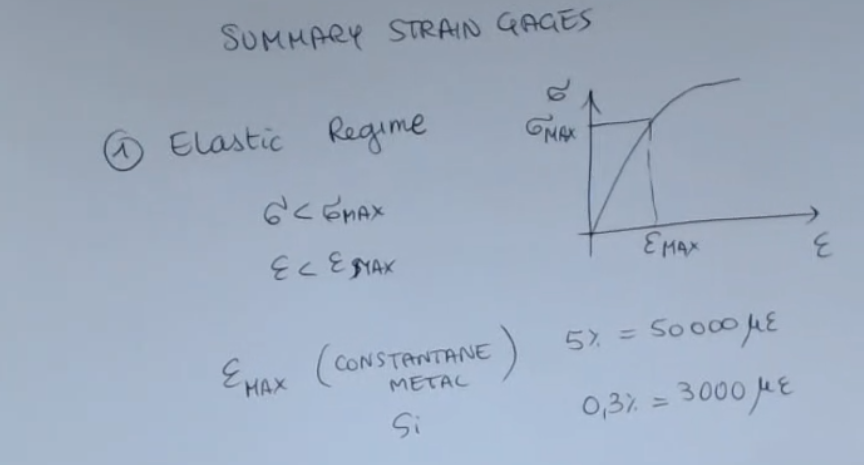 SUMMARY STRAIN GAGES
① Elastic Regime
σ < σMAX
ε < εMAX
σ
σMAX
εMAX
ε
εMAX (CONSTANTANE METAL) 5% = 50000 με
Si 0,3% = 3000 με